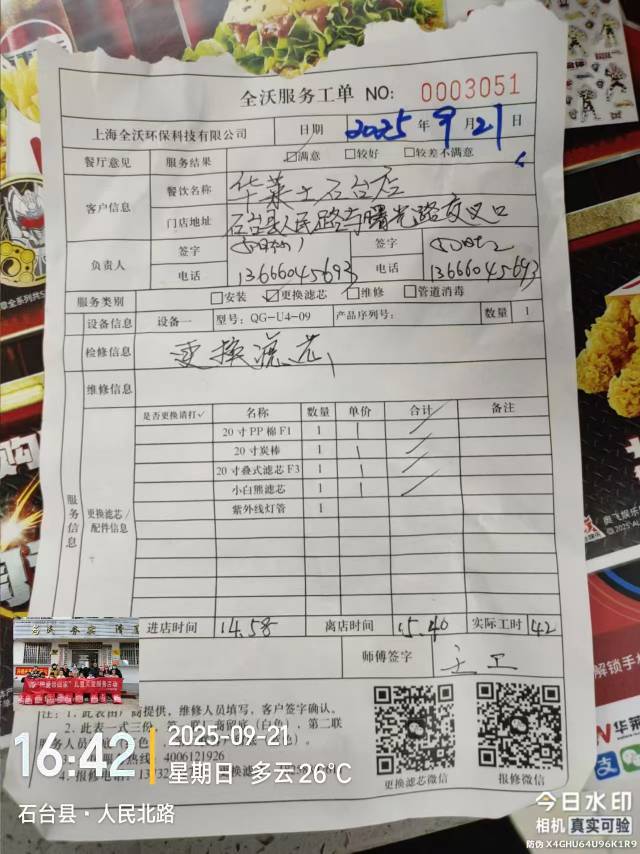 全沃服务工单 NO: 0003051
上海全沃环保科技有限公司 日期 2025 年 9 月 21 日
餐厅意见 服务结果 ☑满意 □较好 □较差不满意
客户信息 餐饮名称 华莱士石台店
门店地址 石台县人民路与曙光路交叉口
负责人 签字 签字
电话 13666045693 电话 13666045693
服务类别 □安装 ☑更换滤芯 □维修 □管道消毒
设备信息 设备一 型号: QG-U4-09 产品序列号: 数量 1
检修信息 更换滤芯
维修信息
服务信息 更换滤芯/配件信息
是否更换请打✓ 名称 数量 单价 合计 备注
20寸PP棉F1 1 1
20寸炭棒 1 1
20寸叠式滤芯F3 1 1
小白熊滤芯 1 1
紫外线灯管 1
进店时间 14.58 离店时间 15.40 实际工时 42
师傅签字 王工
注: 1. 此表由厂商提供, 维修人员填写, 客户签字确认。
2. 此表一式三份, 第一联厂商留底(白色), 第二联
服务热线: 4006121926
4. 报修电话
更换滤芯微信 报修微信
16:42
2025-09-21
星期日 多云 26°C
石台县·人民北路
今日水印
相机 真实可验
防伪 X4GHU64U96K1R9
解锁手机
华莱